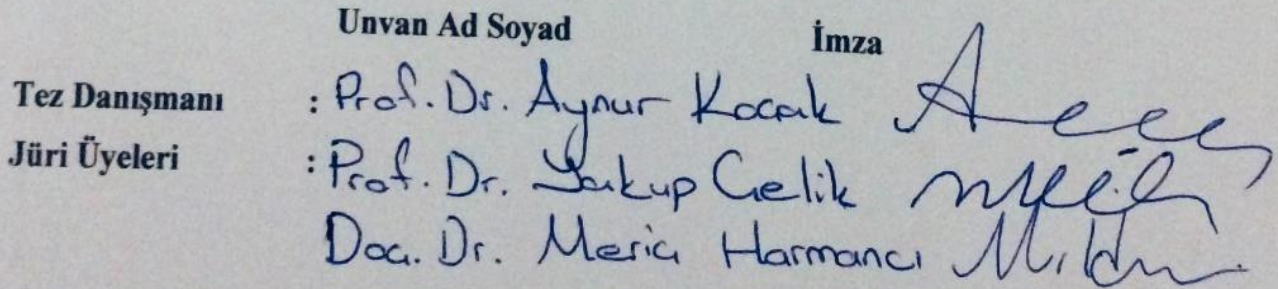 Unvan Ad Soyad İmza
Tez Danışmanı : Prof. Dr. Aynur Koçak
Jüri Üyeleri : Prof. Dr. Yakup Çelik
Doç. Dr. Meriç Harmancı